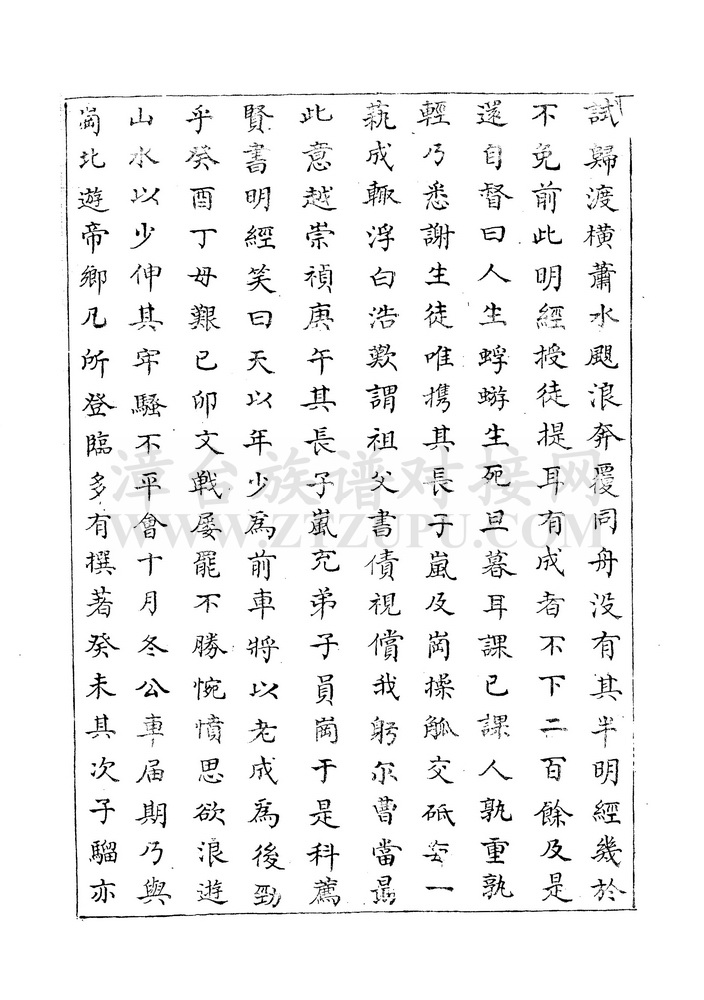 試歸渡橫蕭水颶浪奔覆同舟没有其半明經幾於
不免前此明經授徒提耳有成者不下二百餘及是
遂自督曰人生蜉蝣生死旦暮耳課已課人孰重孰
輕乃悉謝生徒唯携其長子嵐及崗操觚交砥每一
藝成輙浮白浩歎謂祖父書債視償我躬尔曹當勗
此意越崇禎庚午其長子嵐充弟子員崗于是科薦
賢書明經笑曰天以年少為前車將以老成為後勁
乎癸酉丁母艱已卯文戰屡罷不勝惋憤思欲浪遊
山水以少伸其牢騷不平會十月冬公車届期乃與
崗北遊帝鄉凡所登臨多有撰著癸未其次子騮亦
漳台族谱对接网
WWW.ZTZUPU.COM